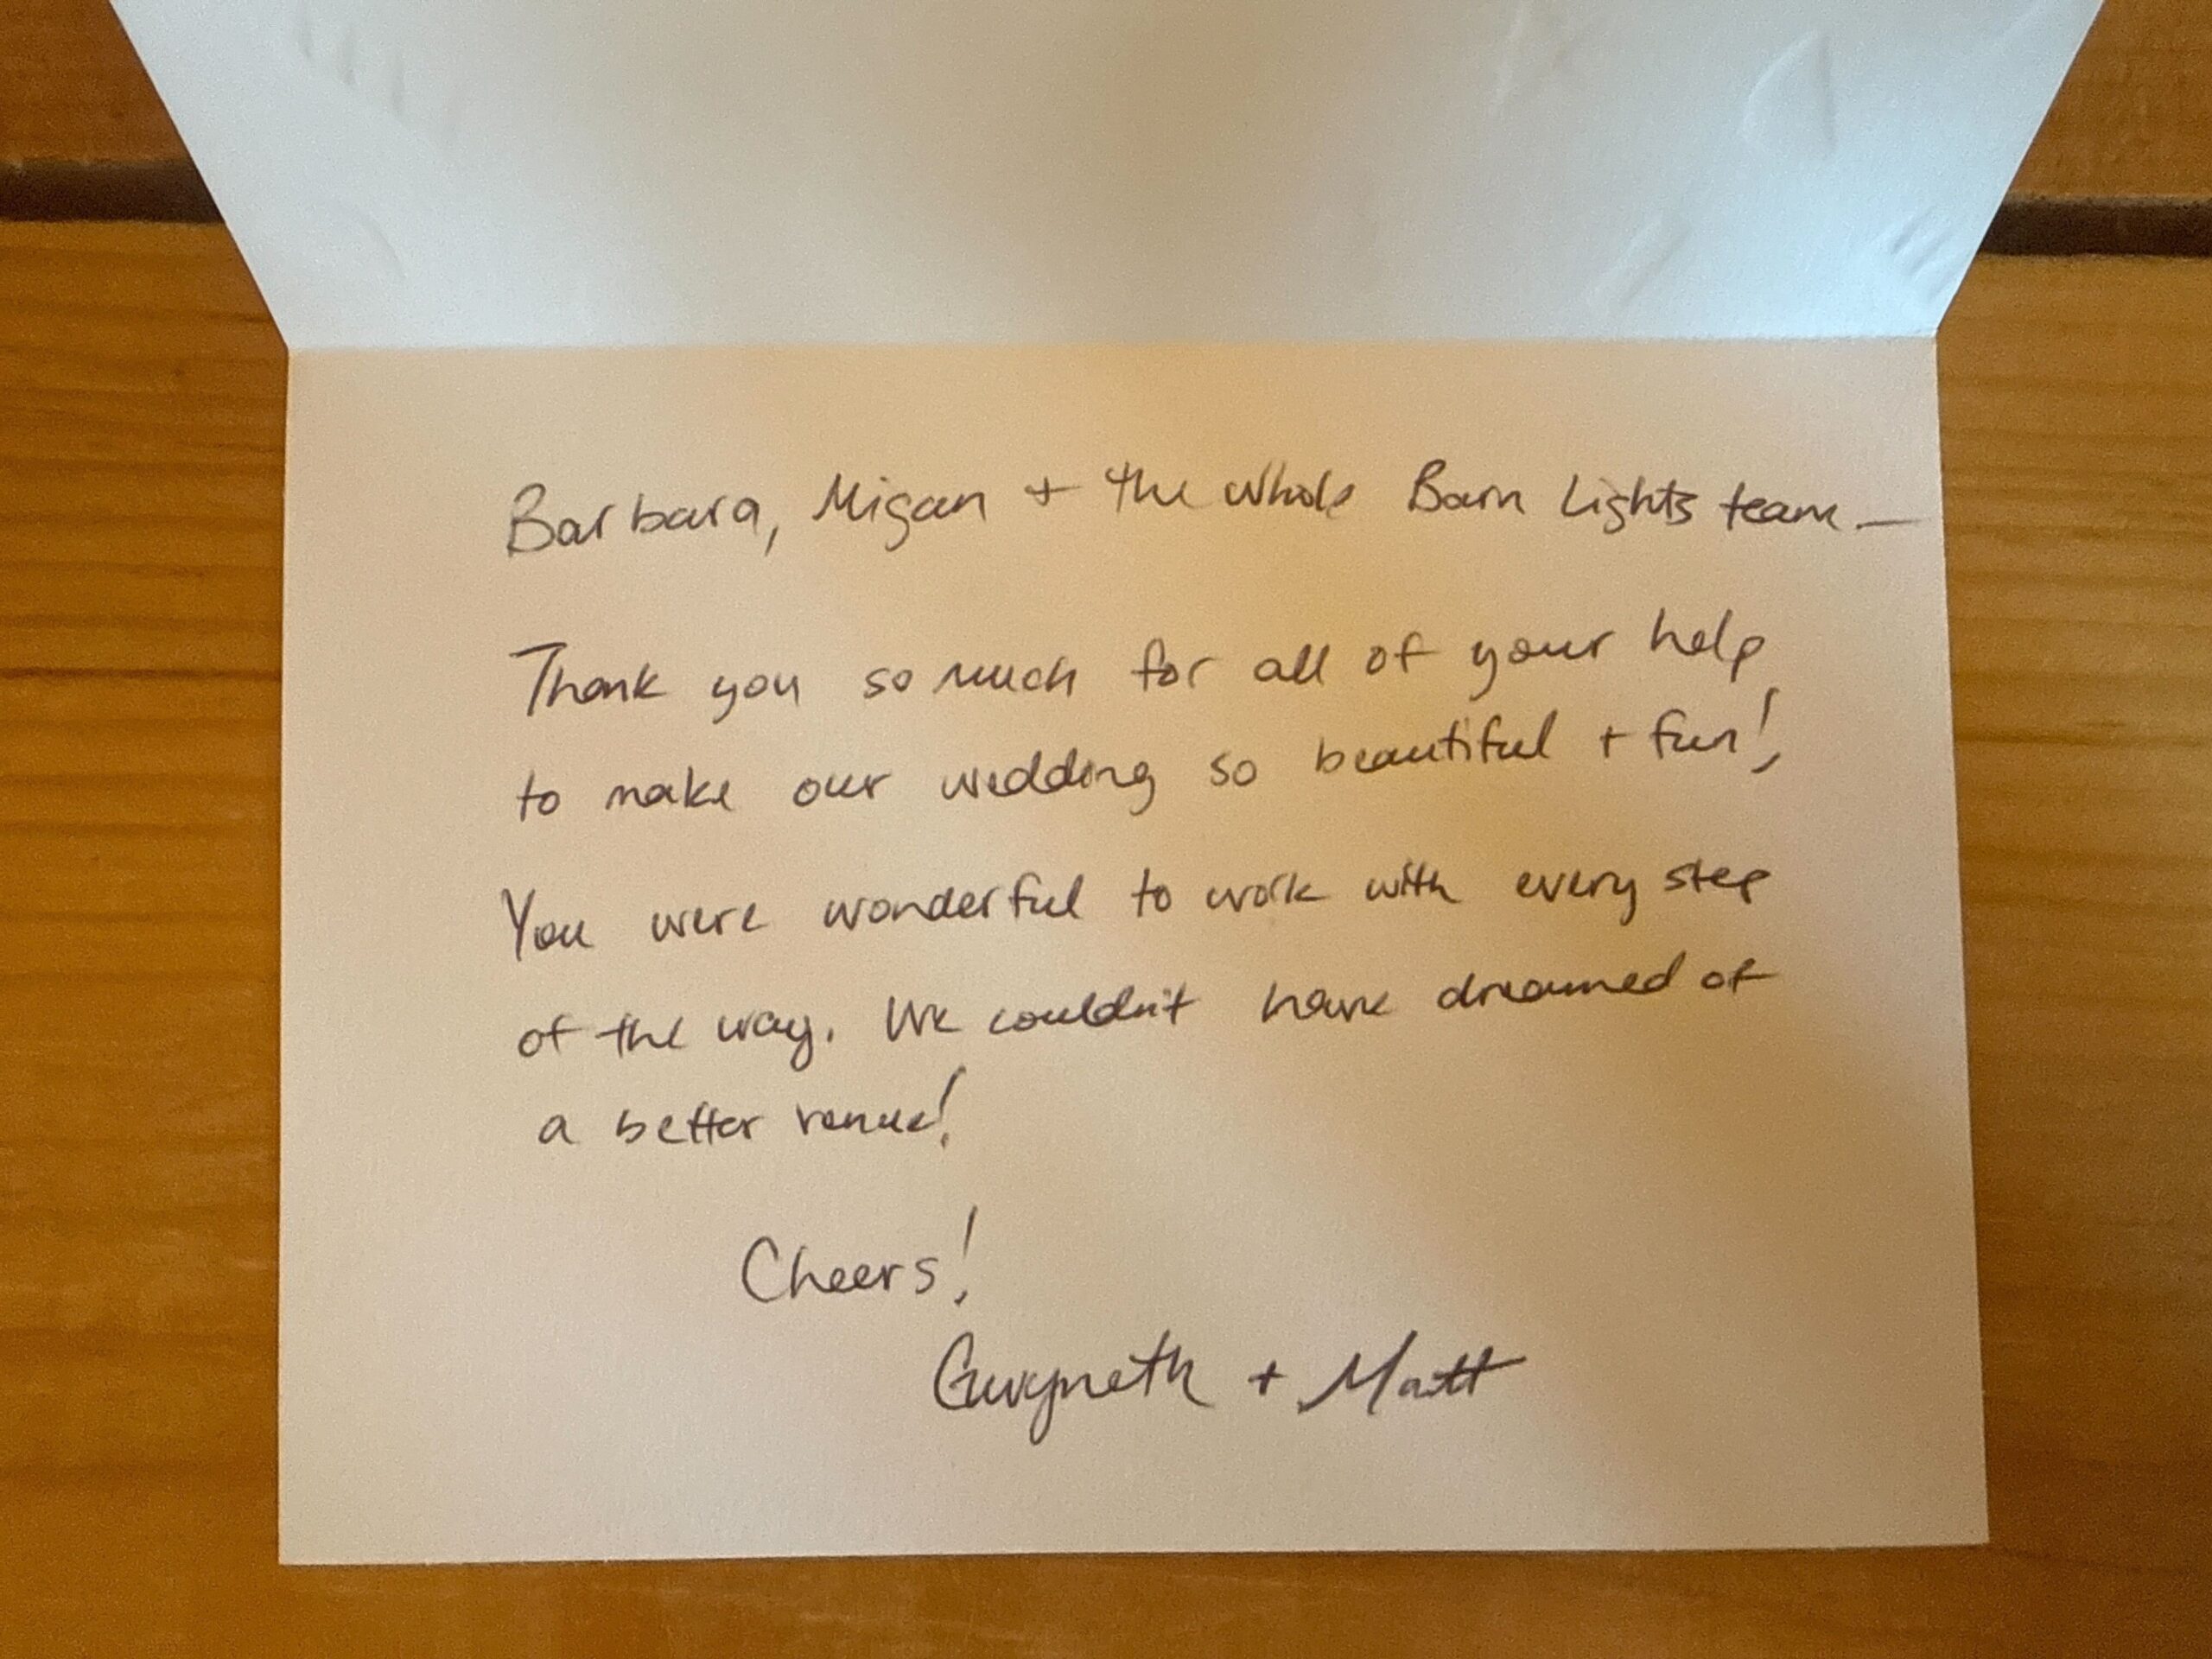 Barbara, Migan + the whole Barn Lights team —
Thank you so much for all of your help
to make our wedding so beautiful + fun!
You were wonderful to work with every step
of the way. We couldn't have dreamed of
a better venue!
Cheers!
Gwyneth + Matt